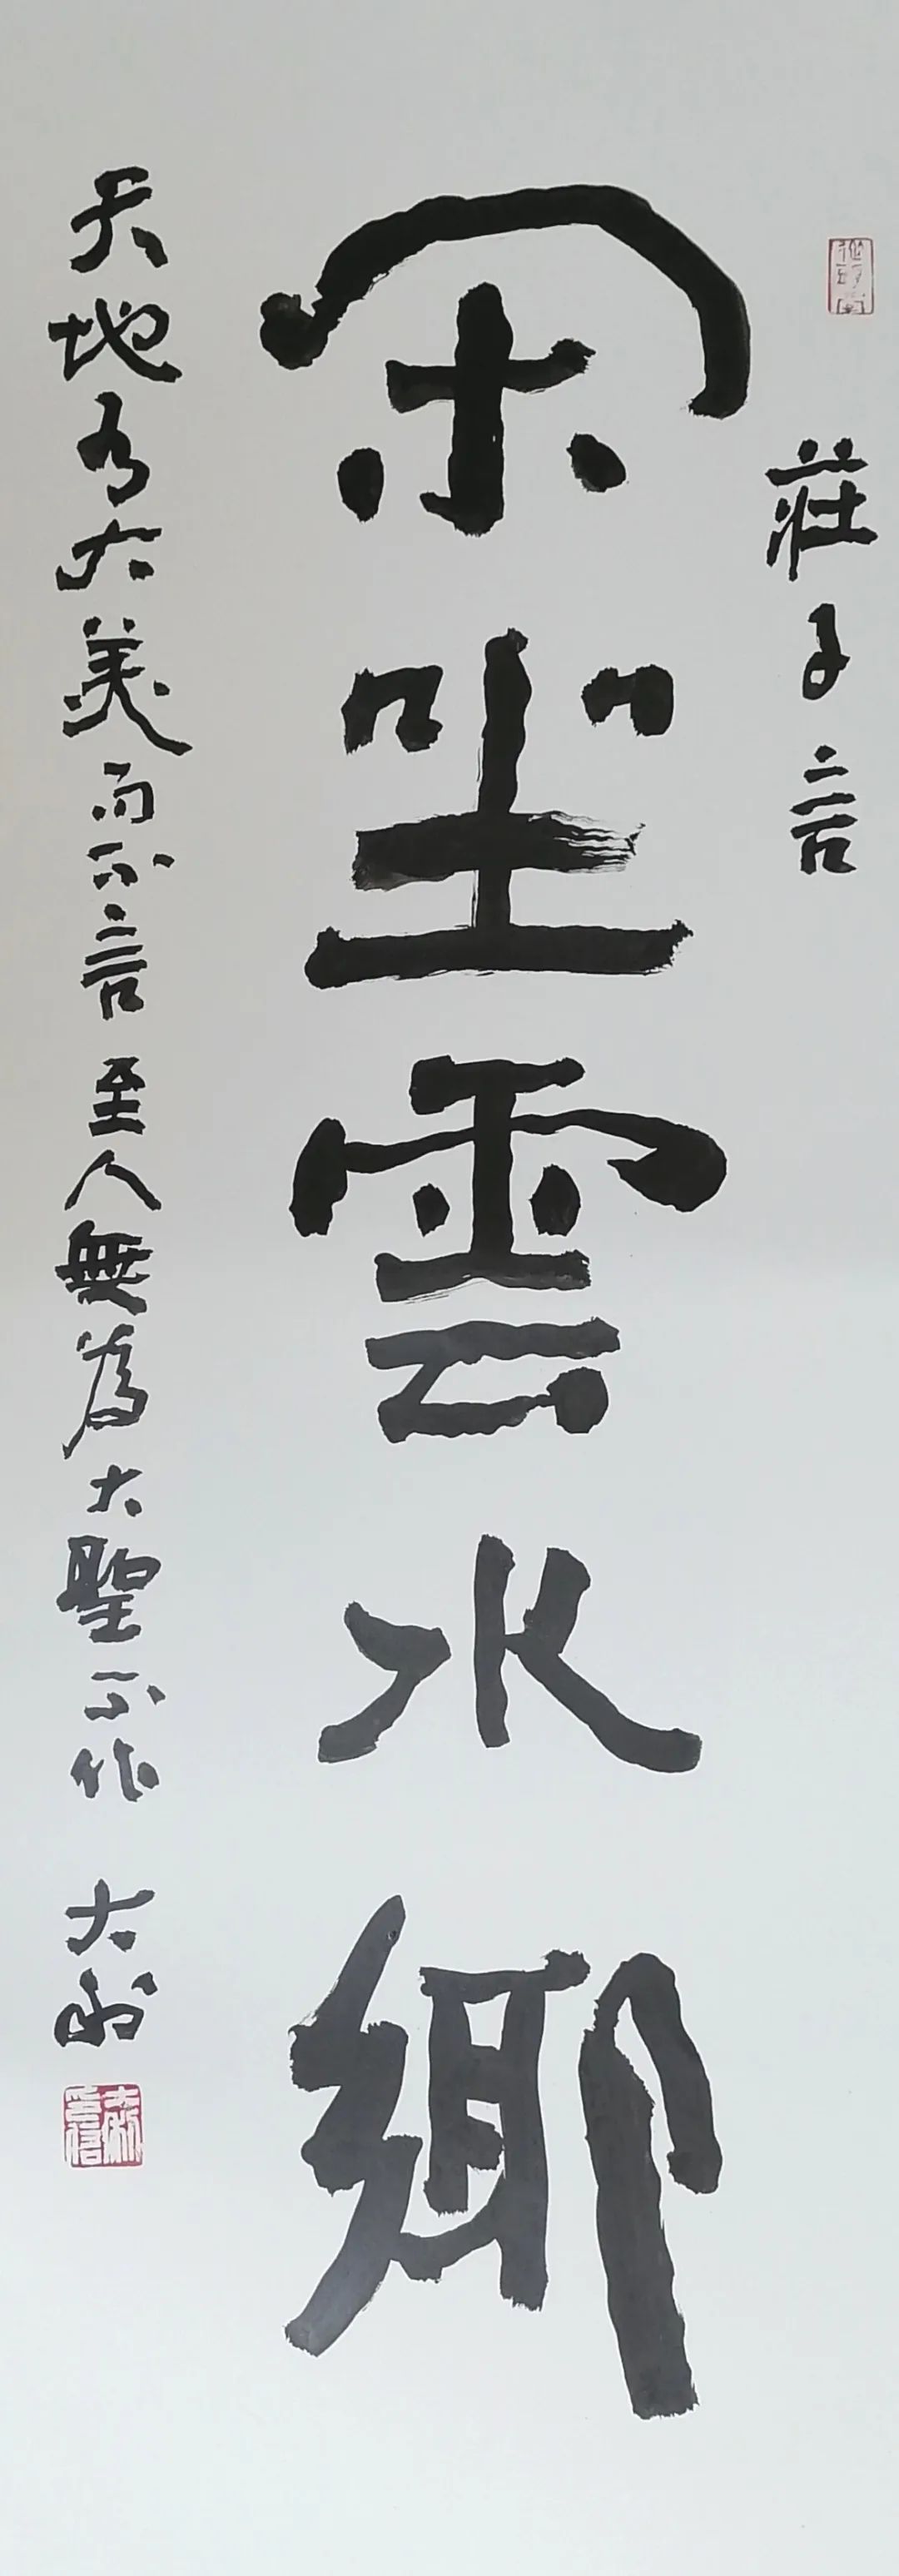 莊子言
閑坐雲水鄉
天地有大美而不言 至人無為大聖不作